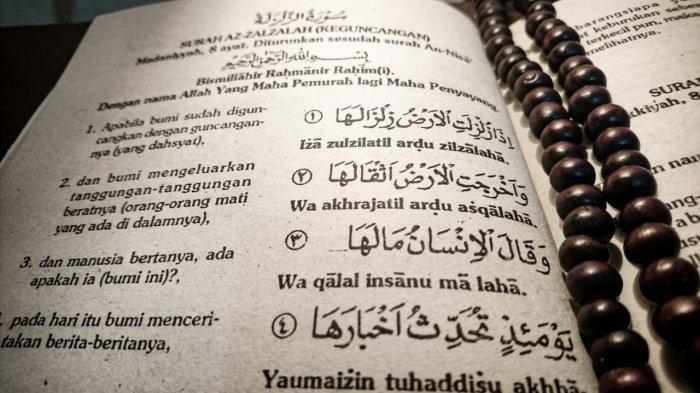 سُوْرَةُ الزَّلْزَلَةِ
SURAH AZ-ZALZALAH (KEGUNCANGAN)
Madaniyyah, 8 ayat. Diturunkan sesudah surah An-Nisā'
بِسْمِ اللهِ الرَّحْمٰنِ الرَّحِيْمِ
Bismillāhir Raḥmānir Raḥīm(i).
Dengan nama Allah Yang Maha Pemurah lagi Maha Penyayang.
1. Apabila bumi sudah digun-
cangkan dengan guncangan-
nya (yang dahsyat),
اِذَا زُلْزِلَتِ الْاَرْضُ زِلْزَالَهَا ١
Iżā zulzilatil arḍu zilzālahā.
2. dan bumi mengeluarkan
tanggungan-tanggungan
beratnya (orang-orang mati
yang ada di dalamnya),
وَاَخْرَجَتِ الْاَرْضُ اَثْقَالَهَا ٢
Wa akhrajatil arḍu aṡqālahā.
3. dan manusia bertanya, ada
apakah ia (bumi ini)?,
وَقَالَ الْاِنْسَانُ مَالَهَا ٣
Wa qālal insānu mā lahā.
. pada hari itu bumi menceri-
takan berita-beritanya,
يَوْمَئِذٍ تُحَدِّثُ اَخْبَارَهَا ٤
Yaumaiżin tuḥaddiṡu akhbā-
barangsiapa
keburukan
terkecil pun,
melihatnya.
SURA